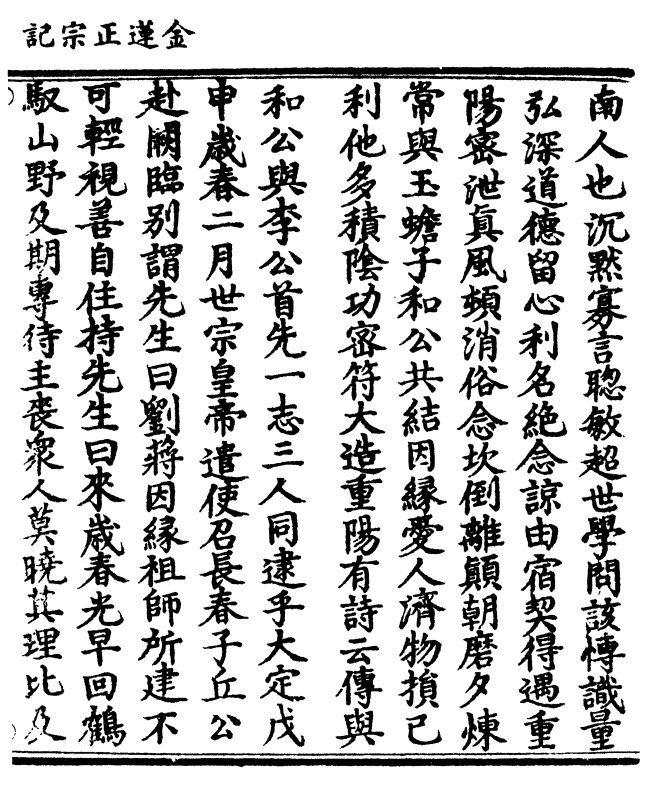 金蓮正宗記
南人也沉默寡言聰敏超世學問該博識量
弘深道德留心利名絶念諒由宿契得遇重
陽密泄真風頓消俗念坎倒離顛朝磨夕煉
常與玉蟾子和公共結因緣愛人濟物損己
利他多積陰功密符大造重陽有詩云傳與
和公與李公首先一志三人同逮乎大定戊
申歲春二月世宗皇帝遣使召長春子丘公
赴闕臨別謂先生曰劉蔣因緣祖師所建不
可輕視善自住持先生曰來歲春光早回鶴
馭山野及期專待主喪衆人莫曉其理比及